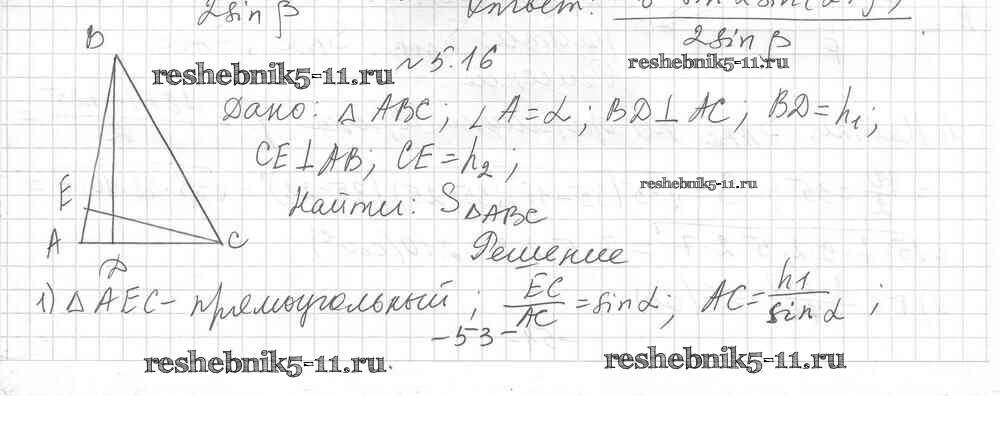 2sin β Ответ:
2sin β
B
reshebnik5-11.ru №5.16 reshebnik5-11.ru
Дано: △ ABC; ∠A=α; BD⊥AC; BD=h₁;
CE⊥AB; CE=h₂;
reshebnik5-11.ru
E Найти: S△ABC
A C
D
Решение
1) △ AEC - прямоугольный; EC/AC = sin α; AC = h1/sin α;
-53-
reshebnik5-11.ru reshebnik5-11.ru